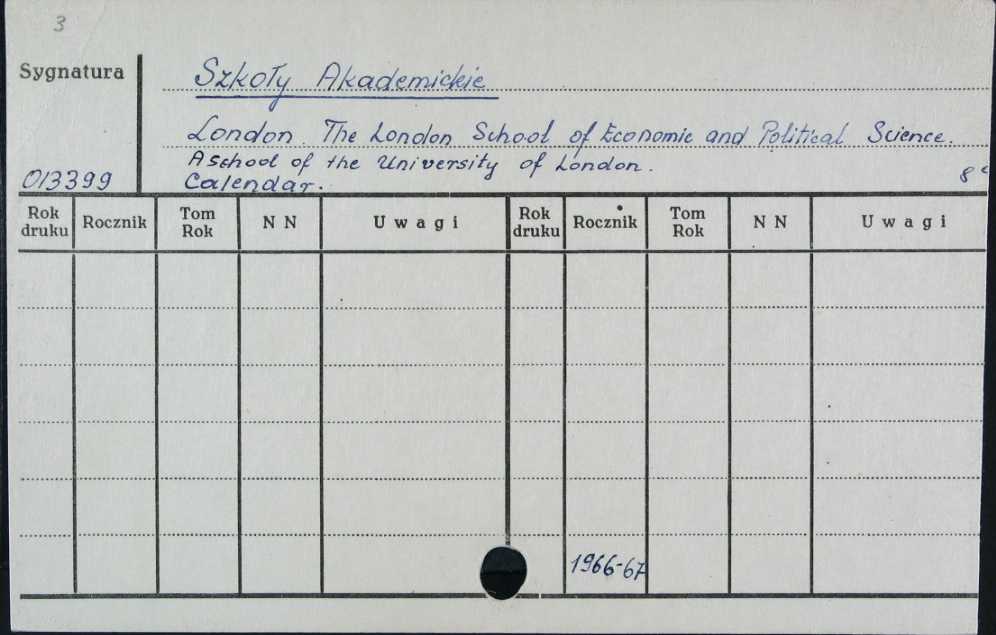 3
Sygnatura
Szkoły Akademickie
London. The London School of Economic and Political Science.
A school of the University of London.
013399
Calendar.
8°
Rok druku Rocznik Tom Rok N N Uwagi Rok druku Rocznik Tom Rok N N Uwagi
1966-67